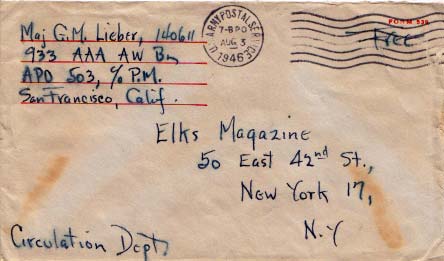 Maj G.M. Lieber, 140611
933 AAA AW Bn
APO 503, c/o P.M.
San Francisco, Calif.
U.S. ARMY POSTAL SERVICE
7-8 PM
AUG 3
1946
FORM 539
Free
Elks Magazine
50 East 42nd St.,
New York 17,
N.Y
Circulation Dept